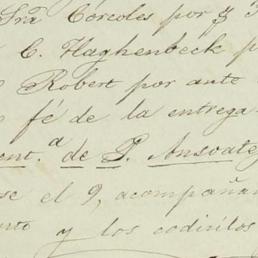 Srã Córcoles por
C. Haghenbeck p
Robert por ante
fé de la entrega
ont.ª de P. Ansoate
se el 9, acompañan
y los codicilos